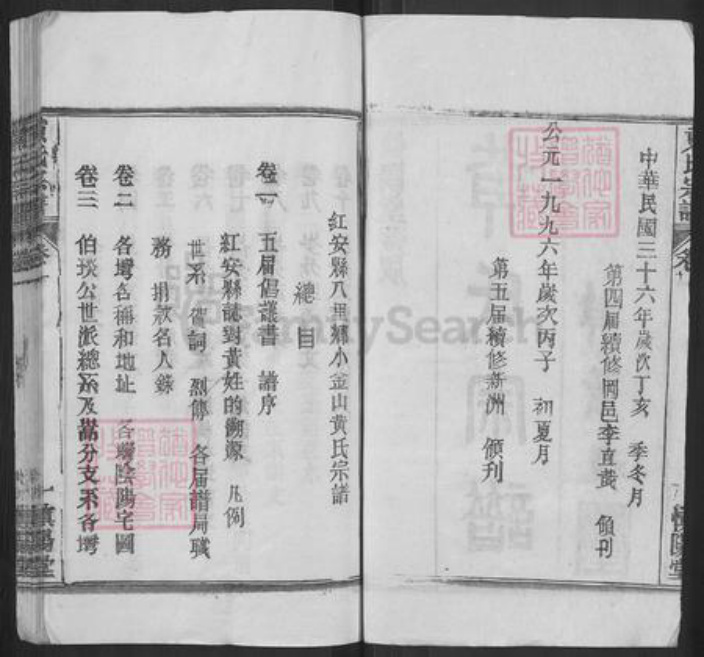 中華民國三十六年歲次丁亥 季冬月
第四屆續修岡邑李直黃 頒刊
公元一九九六年歲次丙子 初夏月
第五屆續修新洲 頒刊
紅安縣八里鄉小金山黃氏宗譜
總目
卷一 五屆倡議書 譜序
紅安縣誌對黃姓的溯源 凡例
世系 賀詞 烈傳 各屆譜局職
務 捐款名人錄
卷二 各塆名稱和地址 各塆陰陽宅圖
卷三 伯琰公世派總系及嵩分支系各塆
FamilySearch